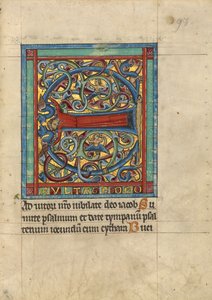 E
XULTA DEO
Ad iutori nro iubilate deo iacob Su
mite psalmum et date tympanum psal
terium iocundum cum cythara Buci